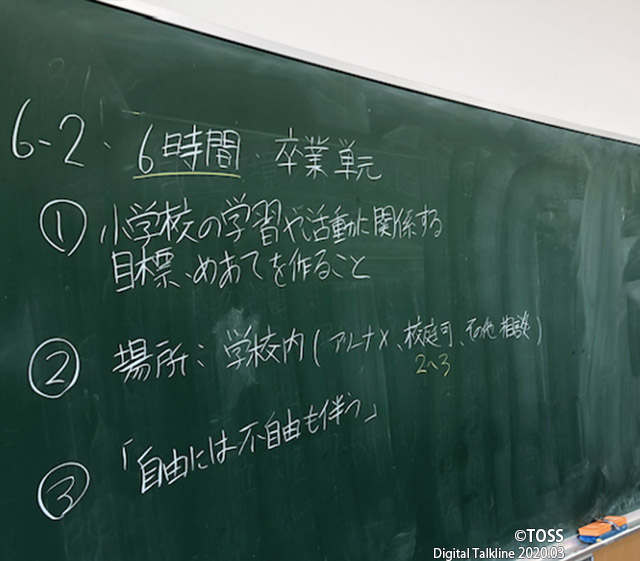 6-2. 6時間・卒業単元
① 小学校の学習や活動に関係する
目標、めあてを作ること
② 場所：学校内(アリーナ×、校庭可、その他相談)
2〜3
③ 「自由には不自由も伴う」
©TOSS
Digital Talkline 2020.03